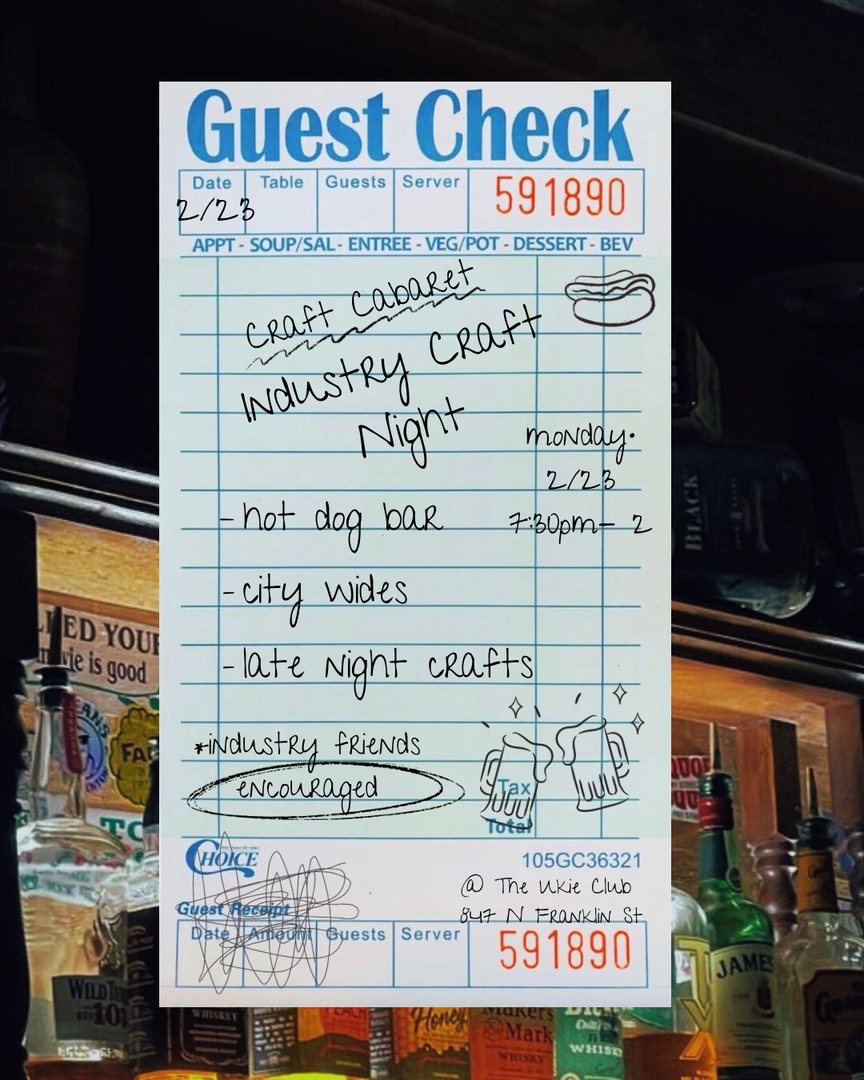 Guest Check
Date Table Guests Server 591890
2/23
APPT - SOUP/SAL - ENTREE - VEG/POT - DESSERT - BEV
Craft Cabaret
Industry Craft
Night
monday.
2/23
7:30pm - 2
- hot dog bar
- city wides
- late night crafts
*industry friends
encouraged
Tax
Total
CHOICE
105GC36321
@ The Ukie Club
847 N Franklin St
Guest Receipt
Date Amount Guests Server 591890
ED YOUR
movie is good
BLACK
WILD TU
101
WHISKEY
PEACH
Honey
Makers
Mark
WHISKY
WHISKY
JAMES